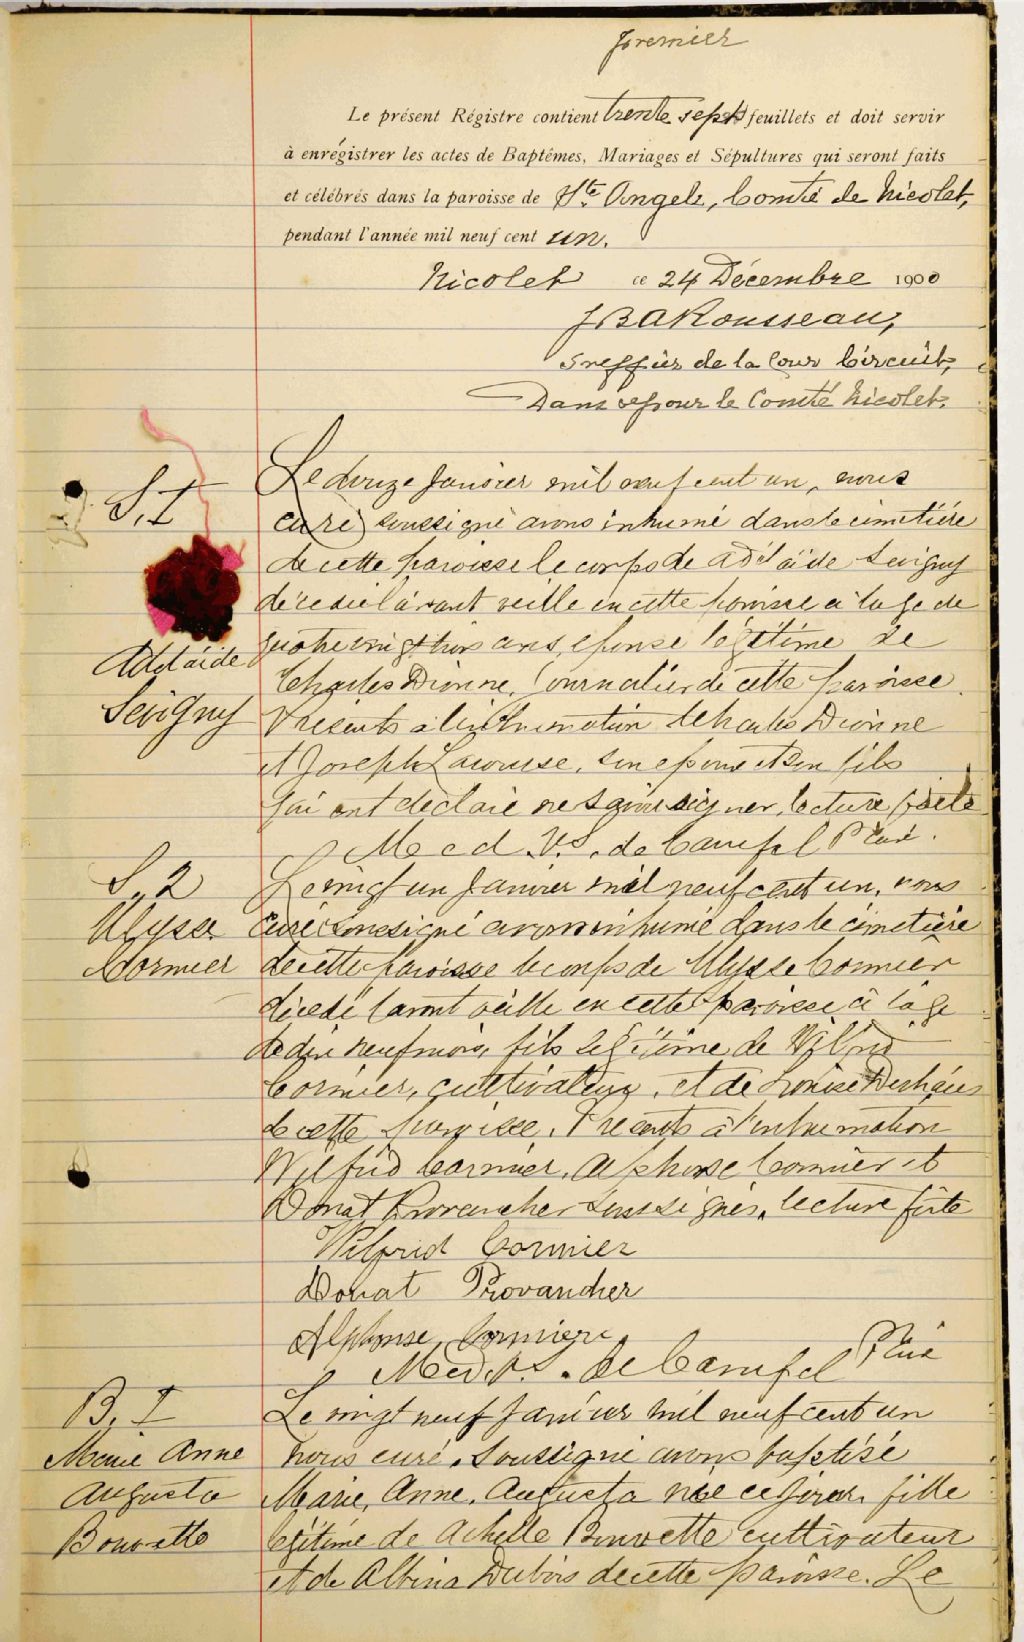 premier
Le présent Régistre contient trente sept feuillets et doit servir
à enrégistrer les actes de Baptêmes, Mariages et Sépultures qui seront faits
et célébrés dans la paroisse de Ste. Angele, Comté de Nicolet,
pendant l'année mil neuf cent un.
Nicolet ce 24 Décembre 1900
JBARousseau,
Greffier de la Cour Circuit,
Dans & pour le Comté Nicolet.
S. 1
Le douze Janvier mil neuf cent un, nous
curé soussigné avons inhumé dans le cimetière
de cette paroisse le corps de Adélaïde Sevigny
décédée l'avant veille en cette paroisse à l'age de
quatre vingt trois ans, épouse légitime de
Adélaïde
Charles Dionne, Journalier de cette paroisse.
Sevigny
Présents à l'inhumation Charles Dionne
et Joseph son epoux et son fils
qui ont déclaré ne savoir signer, lecture faite
Med. Vs. de Camfel Ptre Curé.
S. 2
Le vingt un Janvier mil neuf cent un, nous
Ulysse
Curé soussigné avons inhumé dans le cimetière
Cormier
de cette paroisse le corps de Ulysse Cormier
décédé l'avant veille en cette paroisse à l'age
de dix neuf mois, fils légitime de Wilfrid
Cormier, cultivateur, et de Louise Deshaies
de cette paroisse. Présents à l'inhumation
Wilfrid Cormier, Alphonse Cormier et
Donat Provancher soussignés, lecture faite
Wilfrid Cormier
Donat Provancher
Alphonse Cormier
Med. Vs. de Camfel Ptre Curé
B. 1
Le vingt neuf Janvier mil neuf cent un
Marie Anne
nous curé soussigné avons baptisé
Augusta
Marie, Anne, Augusta née ce jour, fille
Bourette
légitime de Achille Bourette cultivateur
et de Albina Dubois de cette paroisse. Le